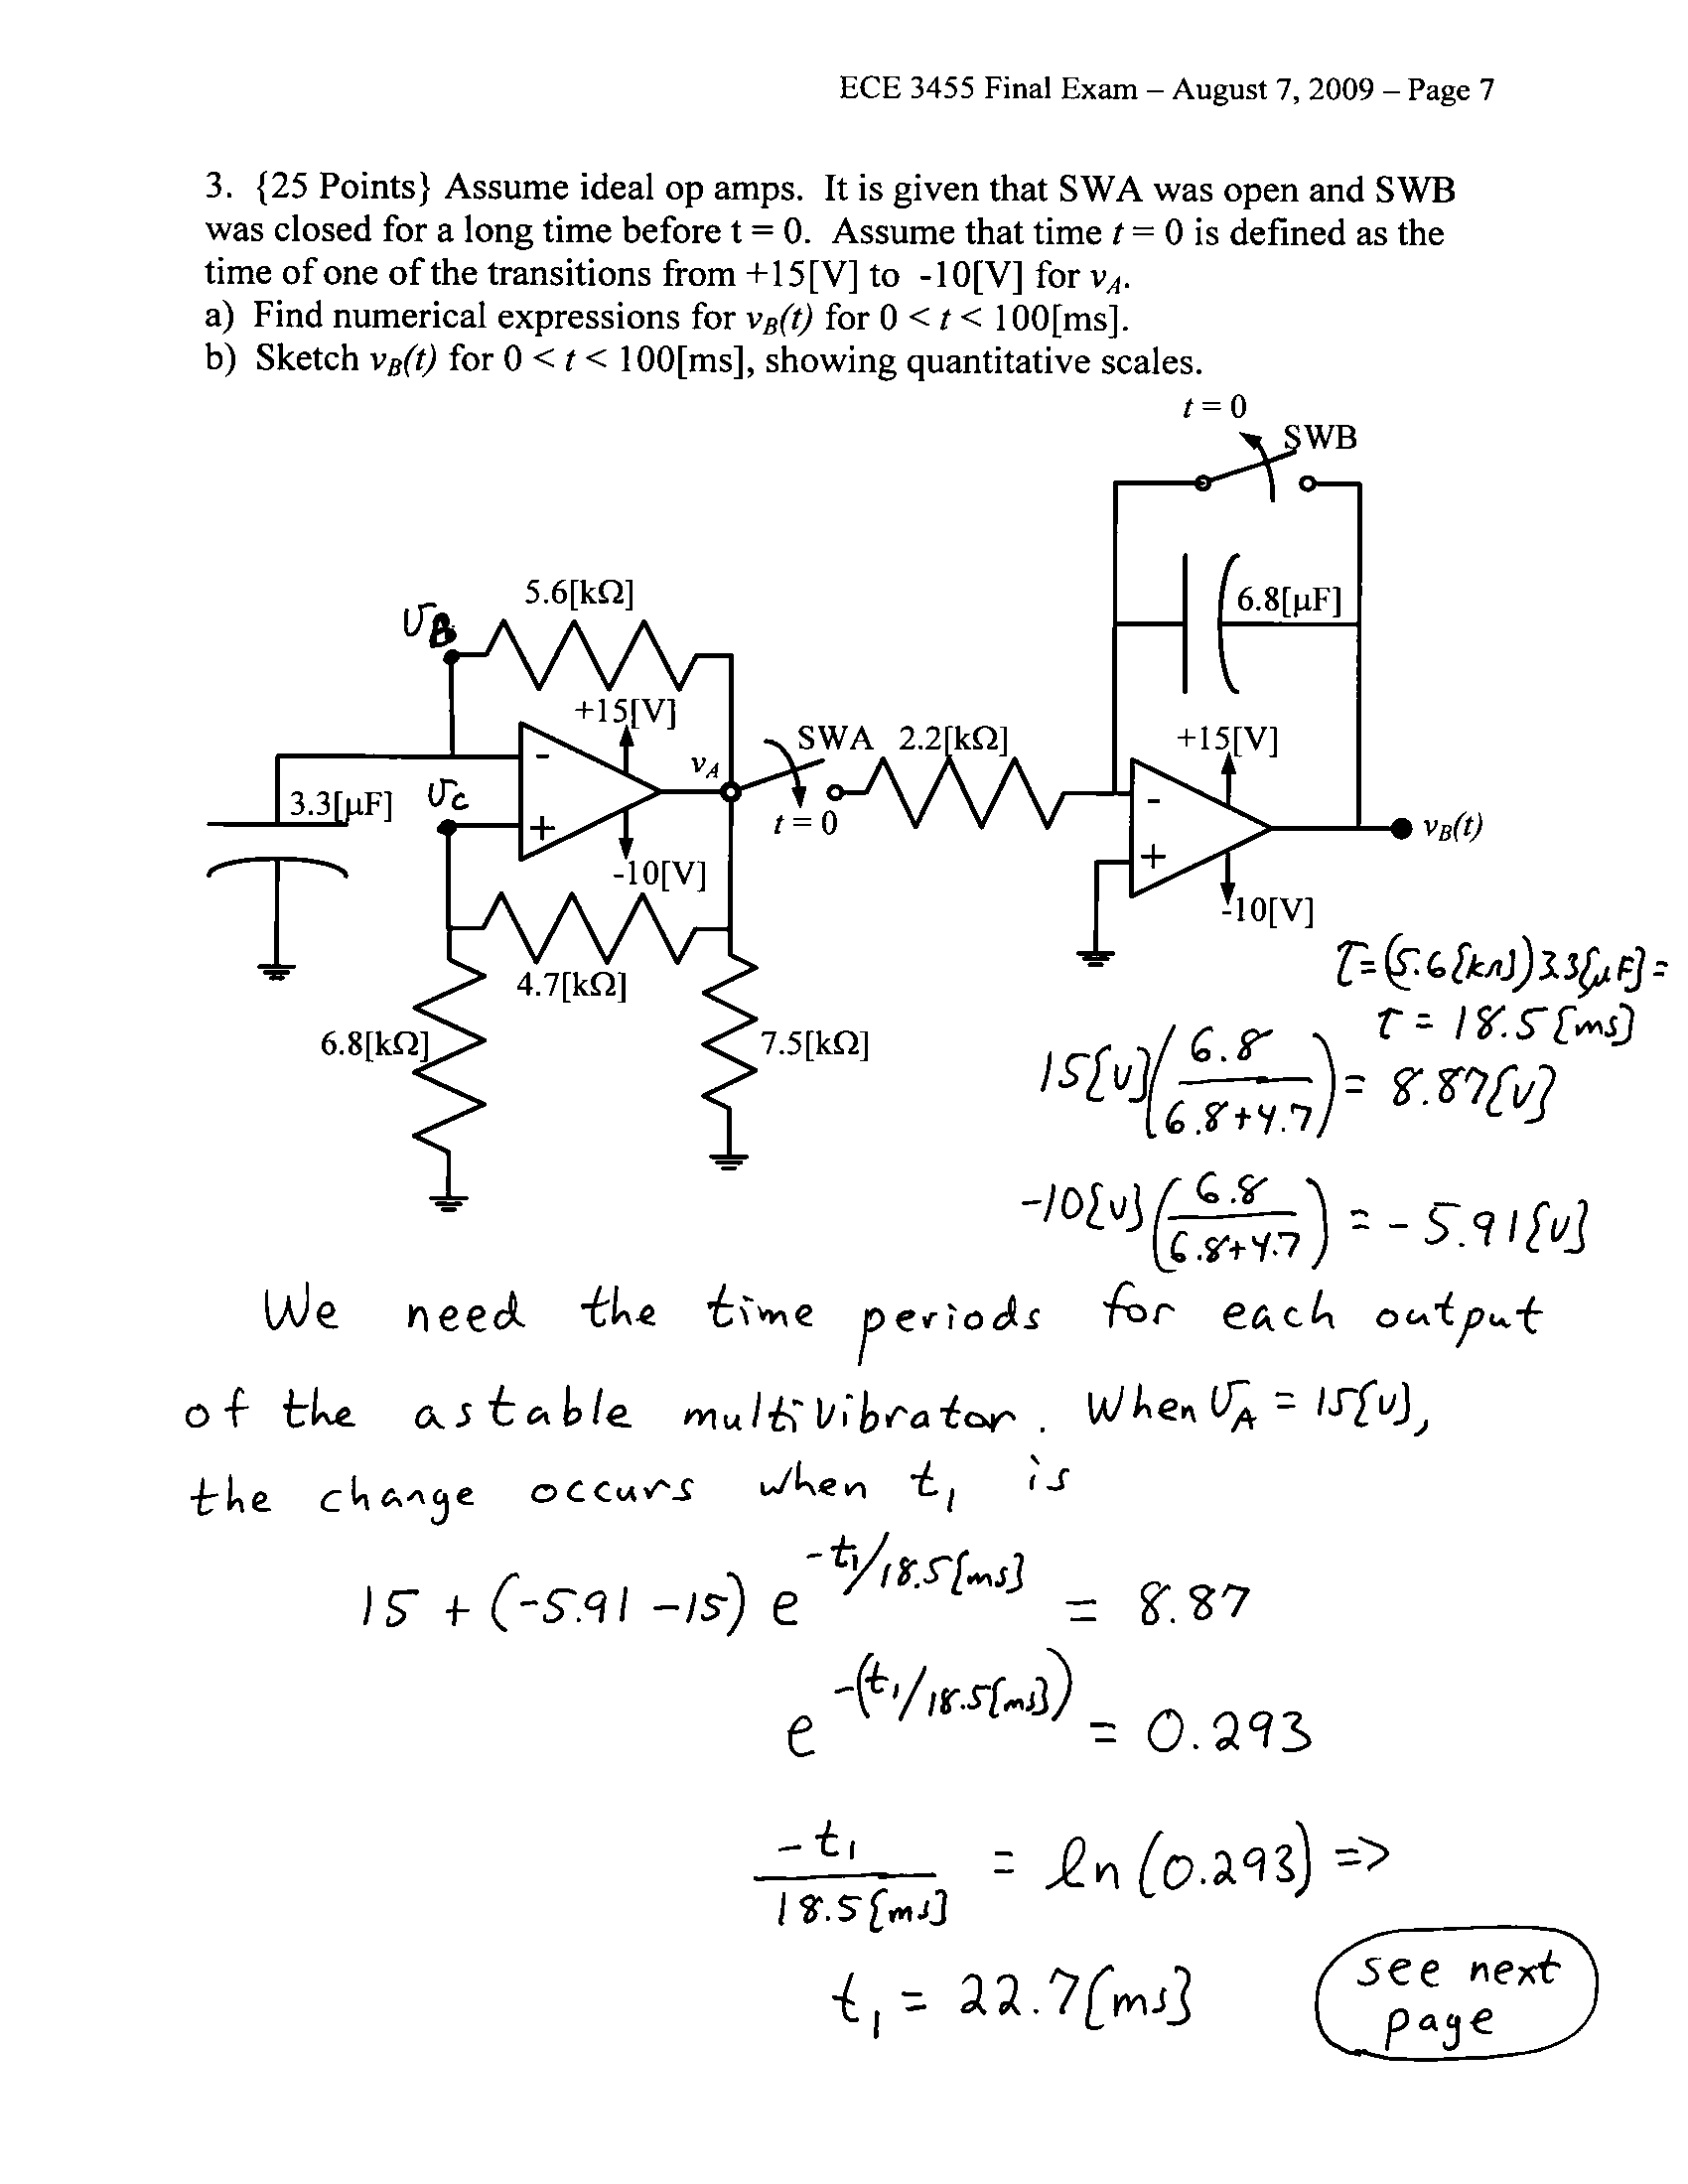 ECE 3455 Final Exam – August 7, 2009 – Page 7
3. {25 Points} Assume ideal op amps. It is given that SWA was open and SWB
was closed for a long time before t = 0. Assume that time t = 0 is defined as the
time of one of the transitions from +15[V] to -10[V] for vA.
a) Find numerical expressions for vB(t) for 0 < t < 100[ms].
b) Sketch vB(t) for 0 < t < 100[ms], showing quantitative scales.
t = 0
SWB
5.6[kΩ]
6.8[μF]
vB
+15[V]
SWA 2.2[kΩ]
+15[V]
-
vA
3.3[μF]
vC
-
+
t = 0
vB(t)
+
-10[V]
-10[V]
τ=(5.6[kΩ])3.3[μF]=
4.7[kΩ]
τ = 18.5[ms]
6.8[kΩ]
7.5[kΩ]
15[V](6.8/(6.8+4.7)) = 8.87[V]
-10[V](6.8/(6.8+4.7)) = -5.91[V]
We need the time periods for each output
of the astable multivibrator. When vA = 15[V],
the change occurs when t1 is
15 + (-5.91 -15) e^-t1/18.5[ms] = 8.87
e^-(t1/18.5[ms]) = 0.293
-t1/18.5[ms] = ln(0.293) =>
t1 = 22.7[ms]
see next
page